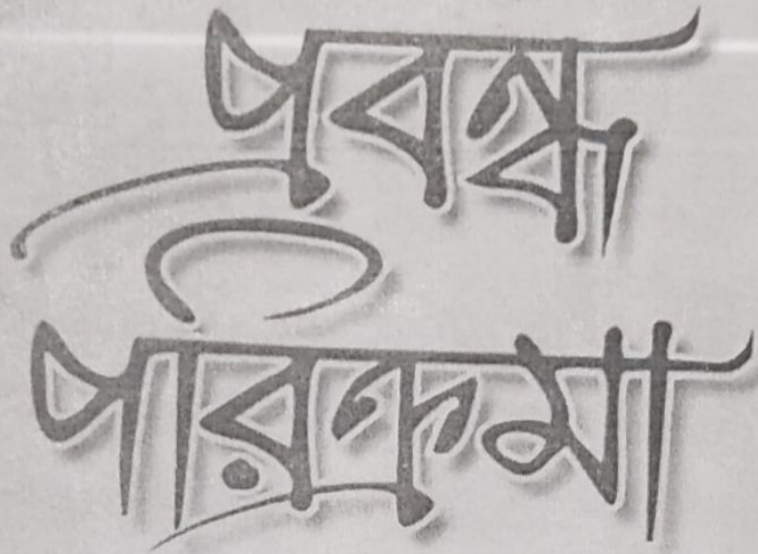 প্রবন্ধ
পরিক্রমা